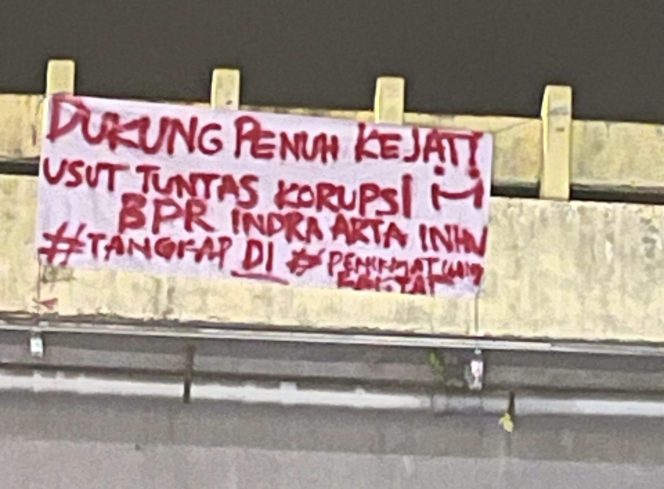 DUKUNG PENUH KEJATI
USUT TUNTAS KORUPSI
BPR INDRA ARTA INHU
#TANGKAP DI #